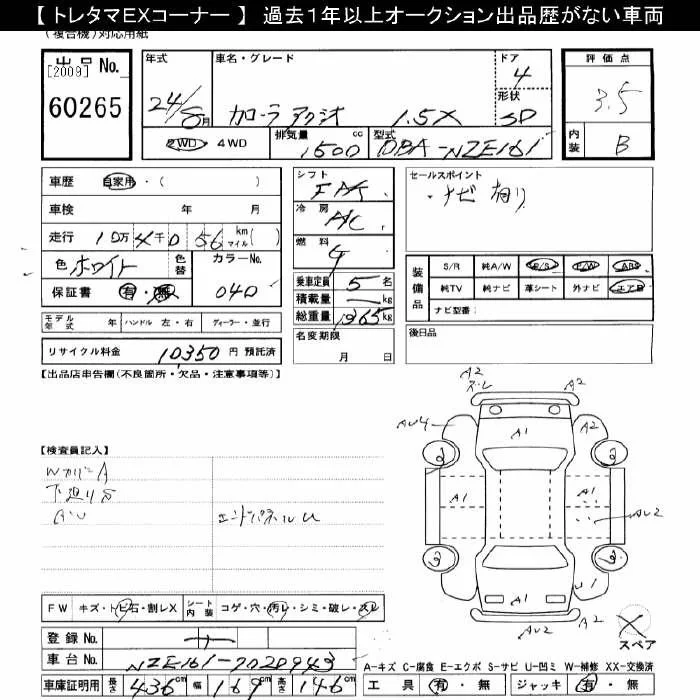 【 トレタマEXコーナー 】 過去1年以上オークション出品歴がない車両
(複合機)対応用紙
出品 No.
[2009]
60265
年式
24/8月
車名・グレード
カローラ アクシオ 1.5X
ドア
4
形状
SD
評価点
3.5
内装
B
2WD・4WD
排気量 cc
1500
型式
DBA-NZE161
車歴 自家用・( )
車検 年 月
走行 10万 4千 0 56 km マイル( )
色 ホワイト
色替
カラーNo.
040
保証書 有・無
シフト
FAT
冷房
AC
燃料
G
乗車定員 5 名
積載量 ― kg
総重量 1365 kg
名変期限
月 日
セールスポイント
・ナビ有り
装備品
S/R 純A/W P/S P/W ABS
純TV 純ナビ 革シート 外ナビ エアB
ナビ型番:
後日品
モデル年式 年 ハンドル 左・右 ディーラー・並行
リサイクル料金 10350 円 預託済
【出品店申告欄(不良箇所・欠品・注意事項等)】
【検査員記入】
WカバーA
下廻りサ
AU
エンドパネルU
A2
ズレ
A2
AU4
A1
A2
2
2
A1
A1
AU2
3
3
U1
A1
A2
AU2
スペア
FW キズ・トビ石・割レX
シート内装 コゲ・穴・汚レ・シミ・破レ・スレ
登録 No.
車台 No. NZE161-7020943
車庫証明用 長さ 436 cm 幅 169 cm 高さ 146 cm
A-キズ C-腐食 E-エクボ S-サビ U-凹ミ W-補修 XX-交換済
工具 有・無 ジャッキ 有・無